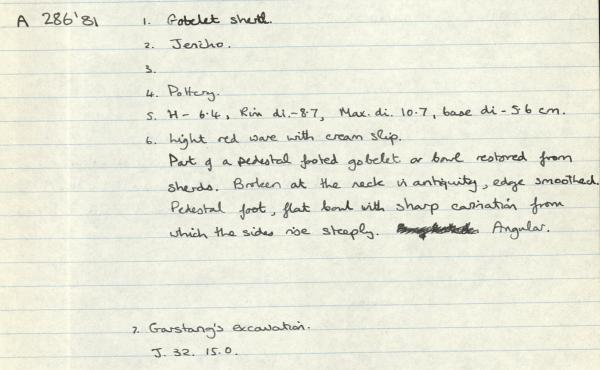 A 286'81
1. Gobelet sherd.
2. Jericho.
3.
4. Pottery.
5. H - 6.4, Rim di. - 8.7, Max. di. 10.7, base di - 5.6 cm.
6. Light red ware with cream slip.
Part of a pedestal footed gobelet or bowl restored from
sherds. Broken at the neck in antiquity, edge smoothed.
Pedestal foot, flat bowl with sharp carination from
which the sides rise steeply. Angular.
7. Garstang's excavation.
J. 32. 15.0.